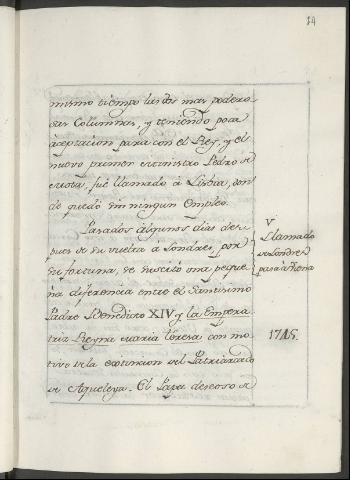 14
mismo tiempo las dos mas podero-
sas Columnas, y teniendo poca
aceptacion para con el Rey, y el
nuevo primer Ministro Pedro de
Mota, fué llamado á Lisboa, don-
de quedó sin ningun empleo.
Pasados algunos dias des-
pues de su vuelta á Londres, por
su fortuna, se suscitó una peque-
ña diferencia entre el Santisimo
Padre Benedicto XIV y la Empera-
triz Reyna Maria Teresa con mo-
tivo de la extincion del Patriarcado
de Aqueleya. El Papa deseoso de
V
Llamado
de Londres
pasa á Viena
1745.